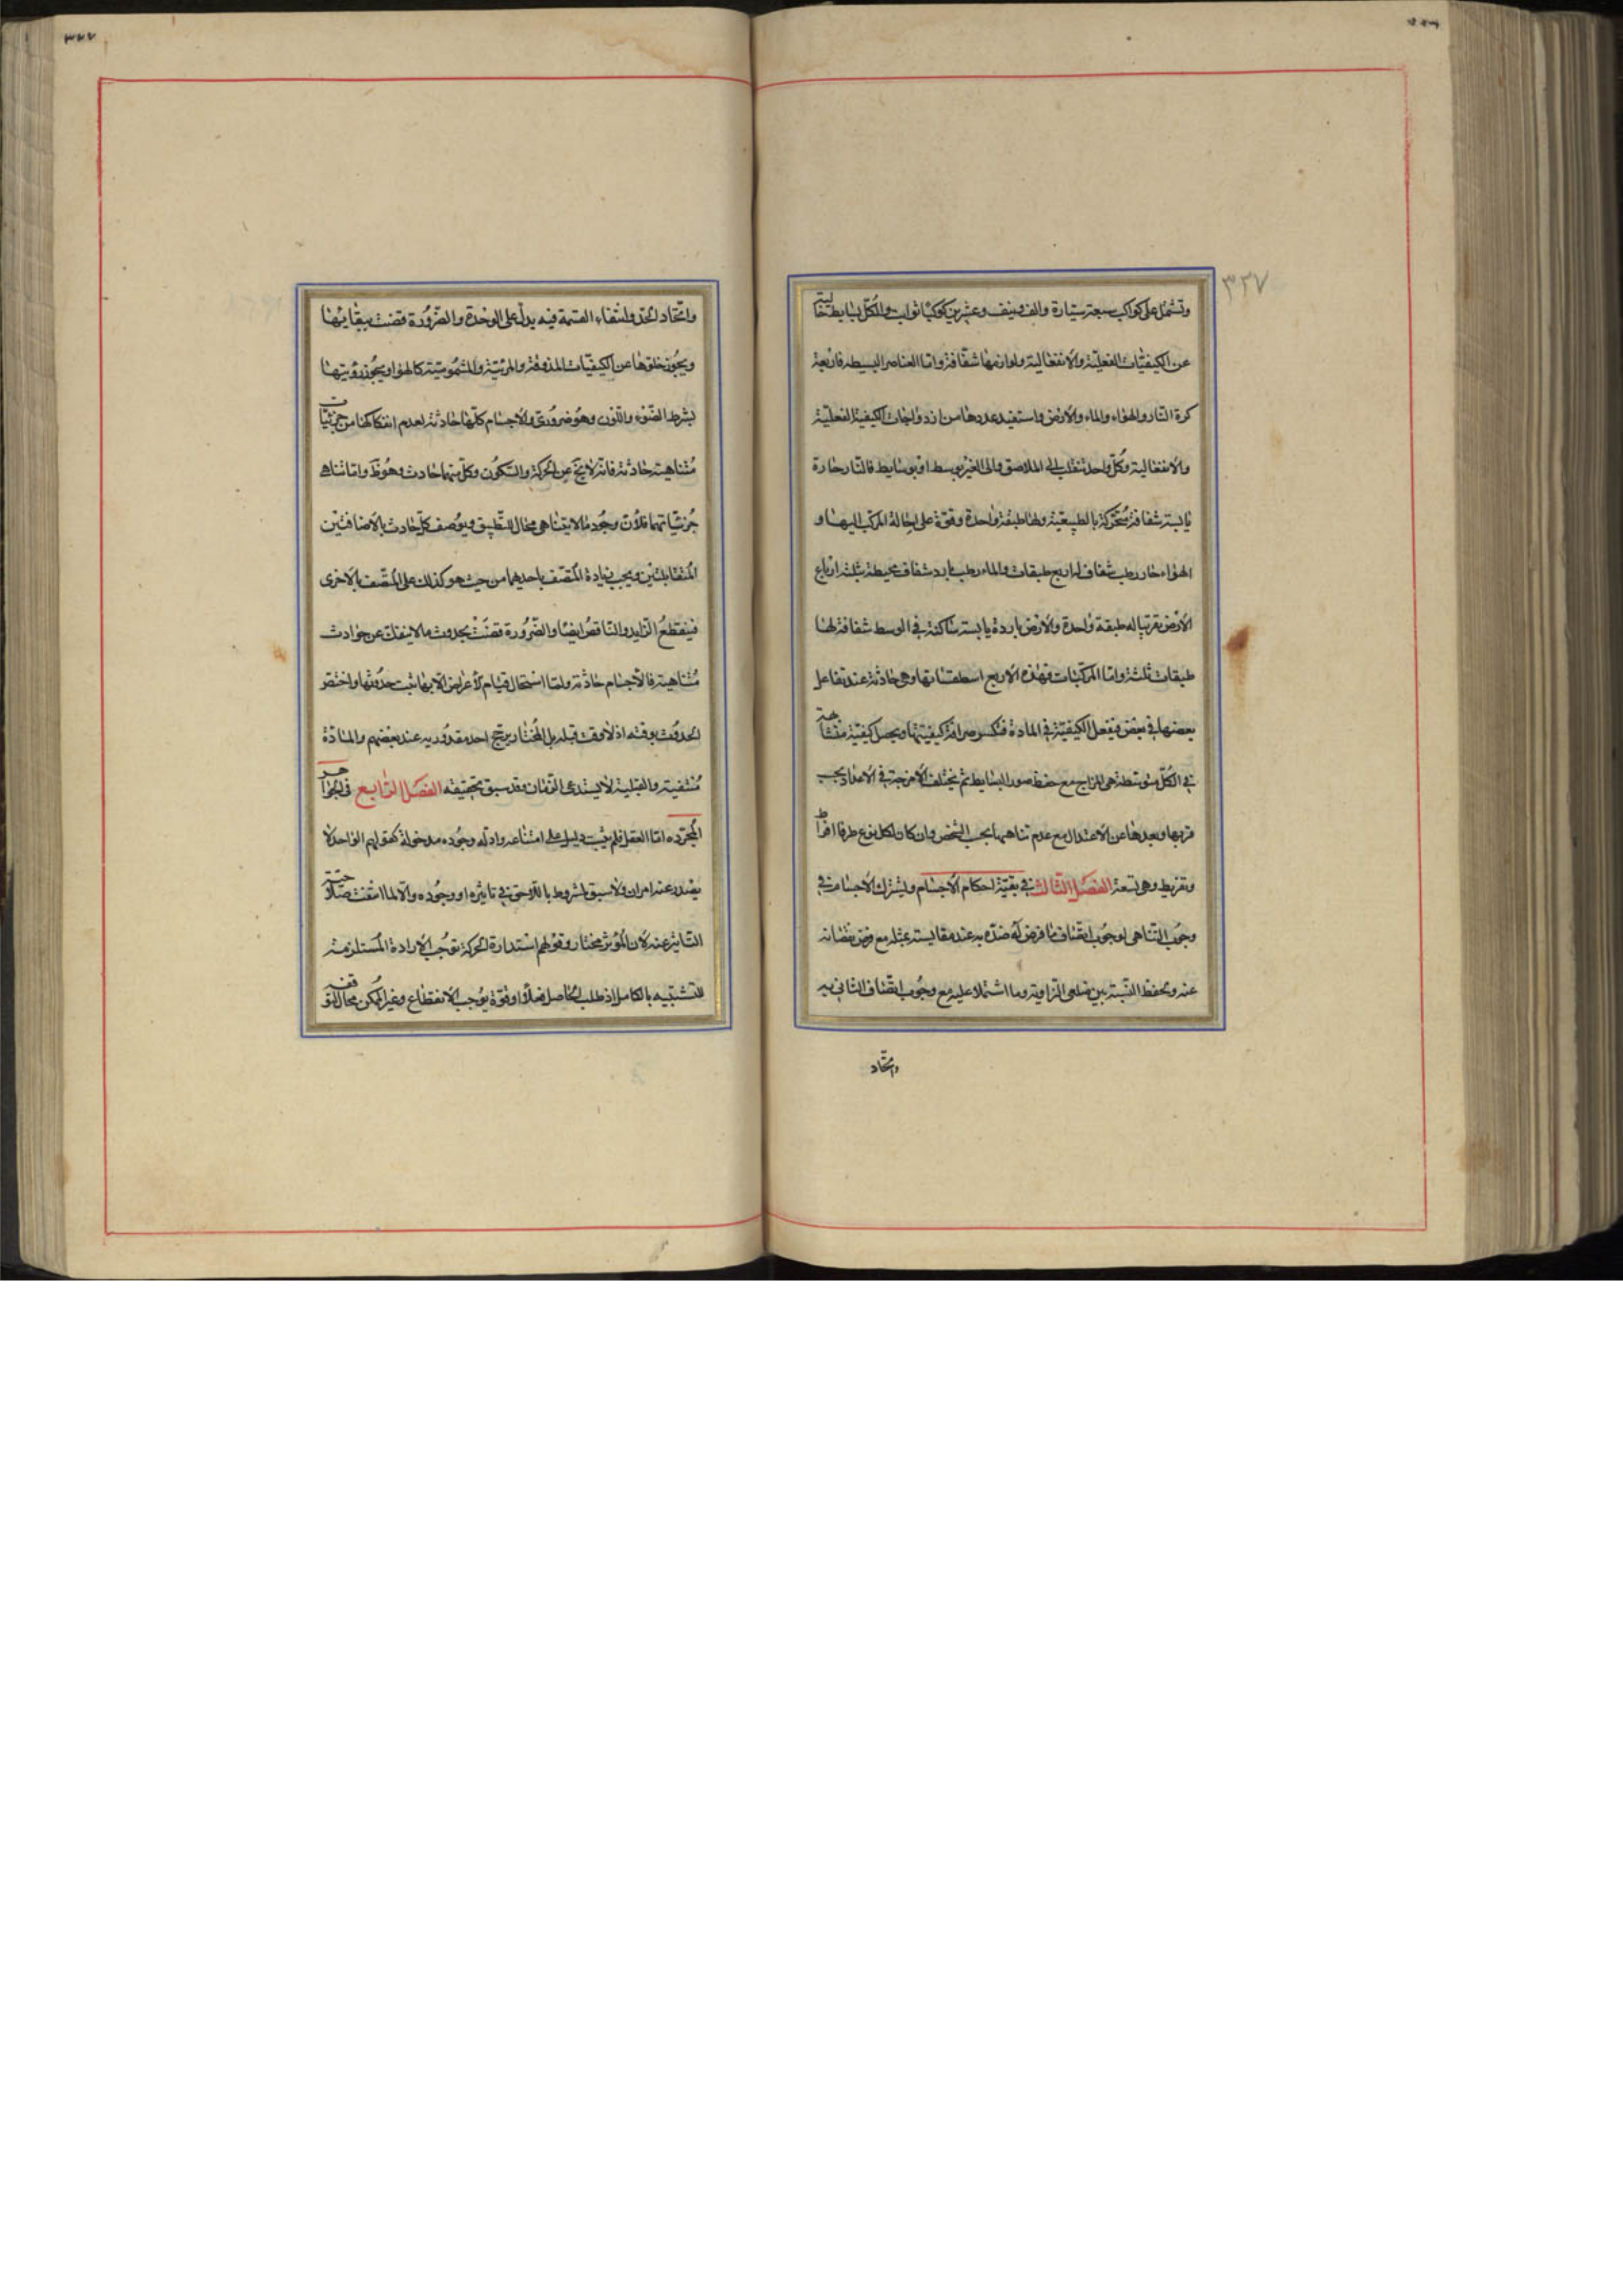 ٣٢٧
وتشمل على كواكب سبعة سيارة والف ونيف وعشرين كوكبا ثوابت والكل بسايط خالية
عن الكيفيات الفعلية والانفعالية ولوازمها شفافة واما العناصر البسيطه فاربعة
كرة النار والهواء والماء والارض واستفيد عددها من ازدواجات الكيفية الفعلية
والانفعالية وكل واحد تنقلب الى الملاصق والى الغير بوسط او بوسايط فالنار حارة
يابسة شفافة متحركة بالطبيعية ولها طبقة واحدة وقوة على احالة المركب اليها و
الهواء حار رطب شفاف له اربع طبقات والماء رطب بارد شفاف محيطة بثلثة ارباع
الارض تقريبا له طبقة واحدة والارض باردة يابسة ساكنة في الوسط شفافة لها
طبقات ثلثة واما المركبات فهذه الاربع اسطقساتها وهي حادثة عند تفاعل
بعضها في بعض فيفعل الكيفية في المادة فتكسر صرافة كيفيتها ويحصل كيفية متشابهة
في الكل متوسطة هي المزاج مع حفظ صور البسايط ثم يختلف الامزجة في الاعداد بحسب
قربها وبعدها عن الاعتدال مع عدم تناهيها بحسب الشخص وان كان لكل نوع طرفا افراط
وتفريط وهي تسعة الفصل الثالث في بقية احكام الاجسام ويشترك الاجسام في
وجوب التناهي لوجوب اتصاف ما فرض له ضده به عند مقايسته بمثله مع فرض نقصانه
عنه ويحفظ النسبة بين ضلعي الزاوية وما اشتملا عليه مع وجوب اتصاف الثاني به
واتحاد
٣٢٧
واتحاد الحد وانتفاء القسمة فيه يدل على الوحدة والضرورة قضت ببقائها
ويجوز خلوها عن الكيفيات المذوقة والمرئية والمشمومية كالهواء ويجوز رؤيتها
بشرط الضوء واللون وهو ضروري والاجسام كلها حادثة لعدم انفكاكها من جزئيات
متناهية حادثة فانه لا يخ عن الحركة والسكون وكل منهما حادث وهو ظ واما تناهي
جزئياتهما فلان وجود ما لا يتناهى محال للتطبيق ويوصف كل حادث بالاضافتين
المتقابلتين ويجب زيادة المتصف باحديهما من حيث هو كذلك على المتصف بالاخرى
فينقطع الزايد والناقص ايضا والضرورة قضت بحدوث ما لا ينفك عن حوادث
متناهية فالاجسام حادثة ولما استحال قيام الاعراض الا بها ثبت حدوثها واختص
الحدوث بوقته اذ لا وقت قبله بل المختار يرجح احد مقدوريه عند بعضهم والمادة
منتفية والقبلية لا يستدعى الزمان وقد سبق تحقيقه الفصل الرابع في الجواهر
المجرده اما العقل فلم يثبت دليل على امتناعه وادلة وجوده مدخولة كقولهم الواحد لا
يصدر عنه امران ولا سبق لمشروط باللاحق في تاثيره او وجوده والا لما انتفت صلاحية
التاثير عنه لان المؤثر مختار وقولهم استدارة الحركة توجب الارادة المستلزمة
للتشبيه بالكامل اذ طلب الحاصل فعلا او قوة يوجب الانقطاع وغير الممكن محال لتوقفه